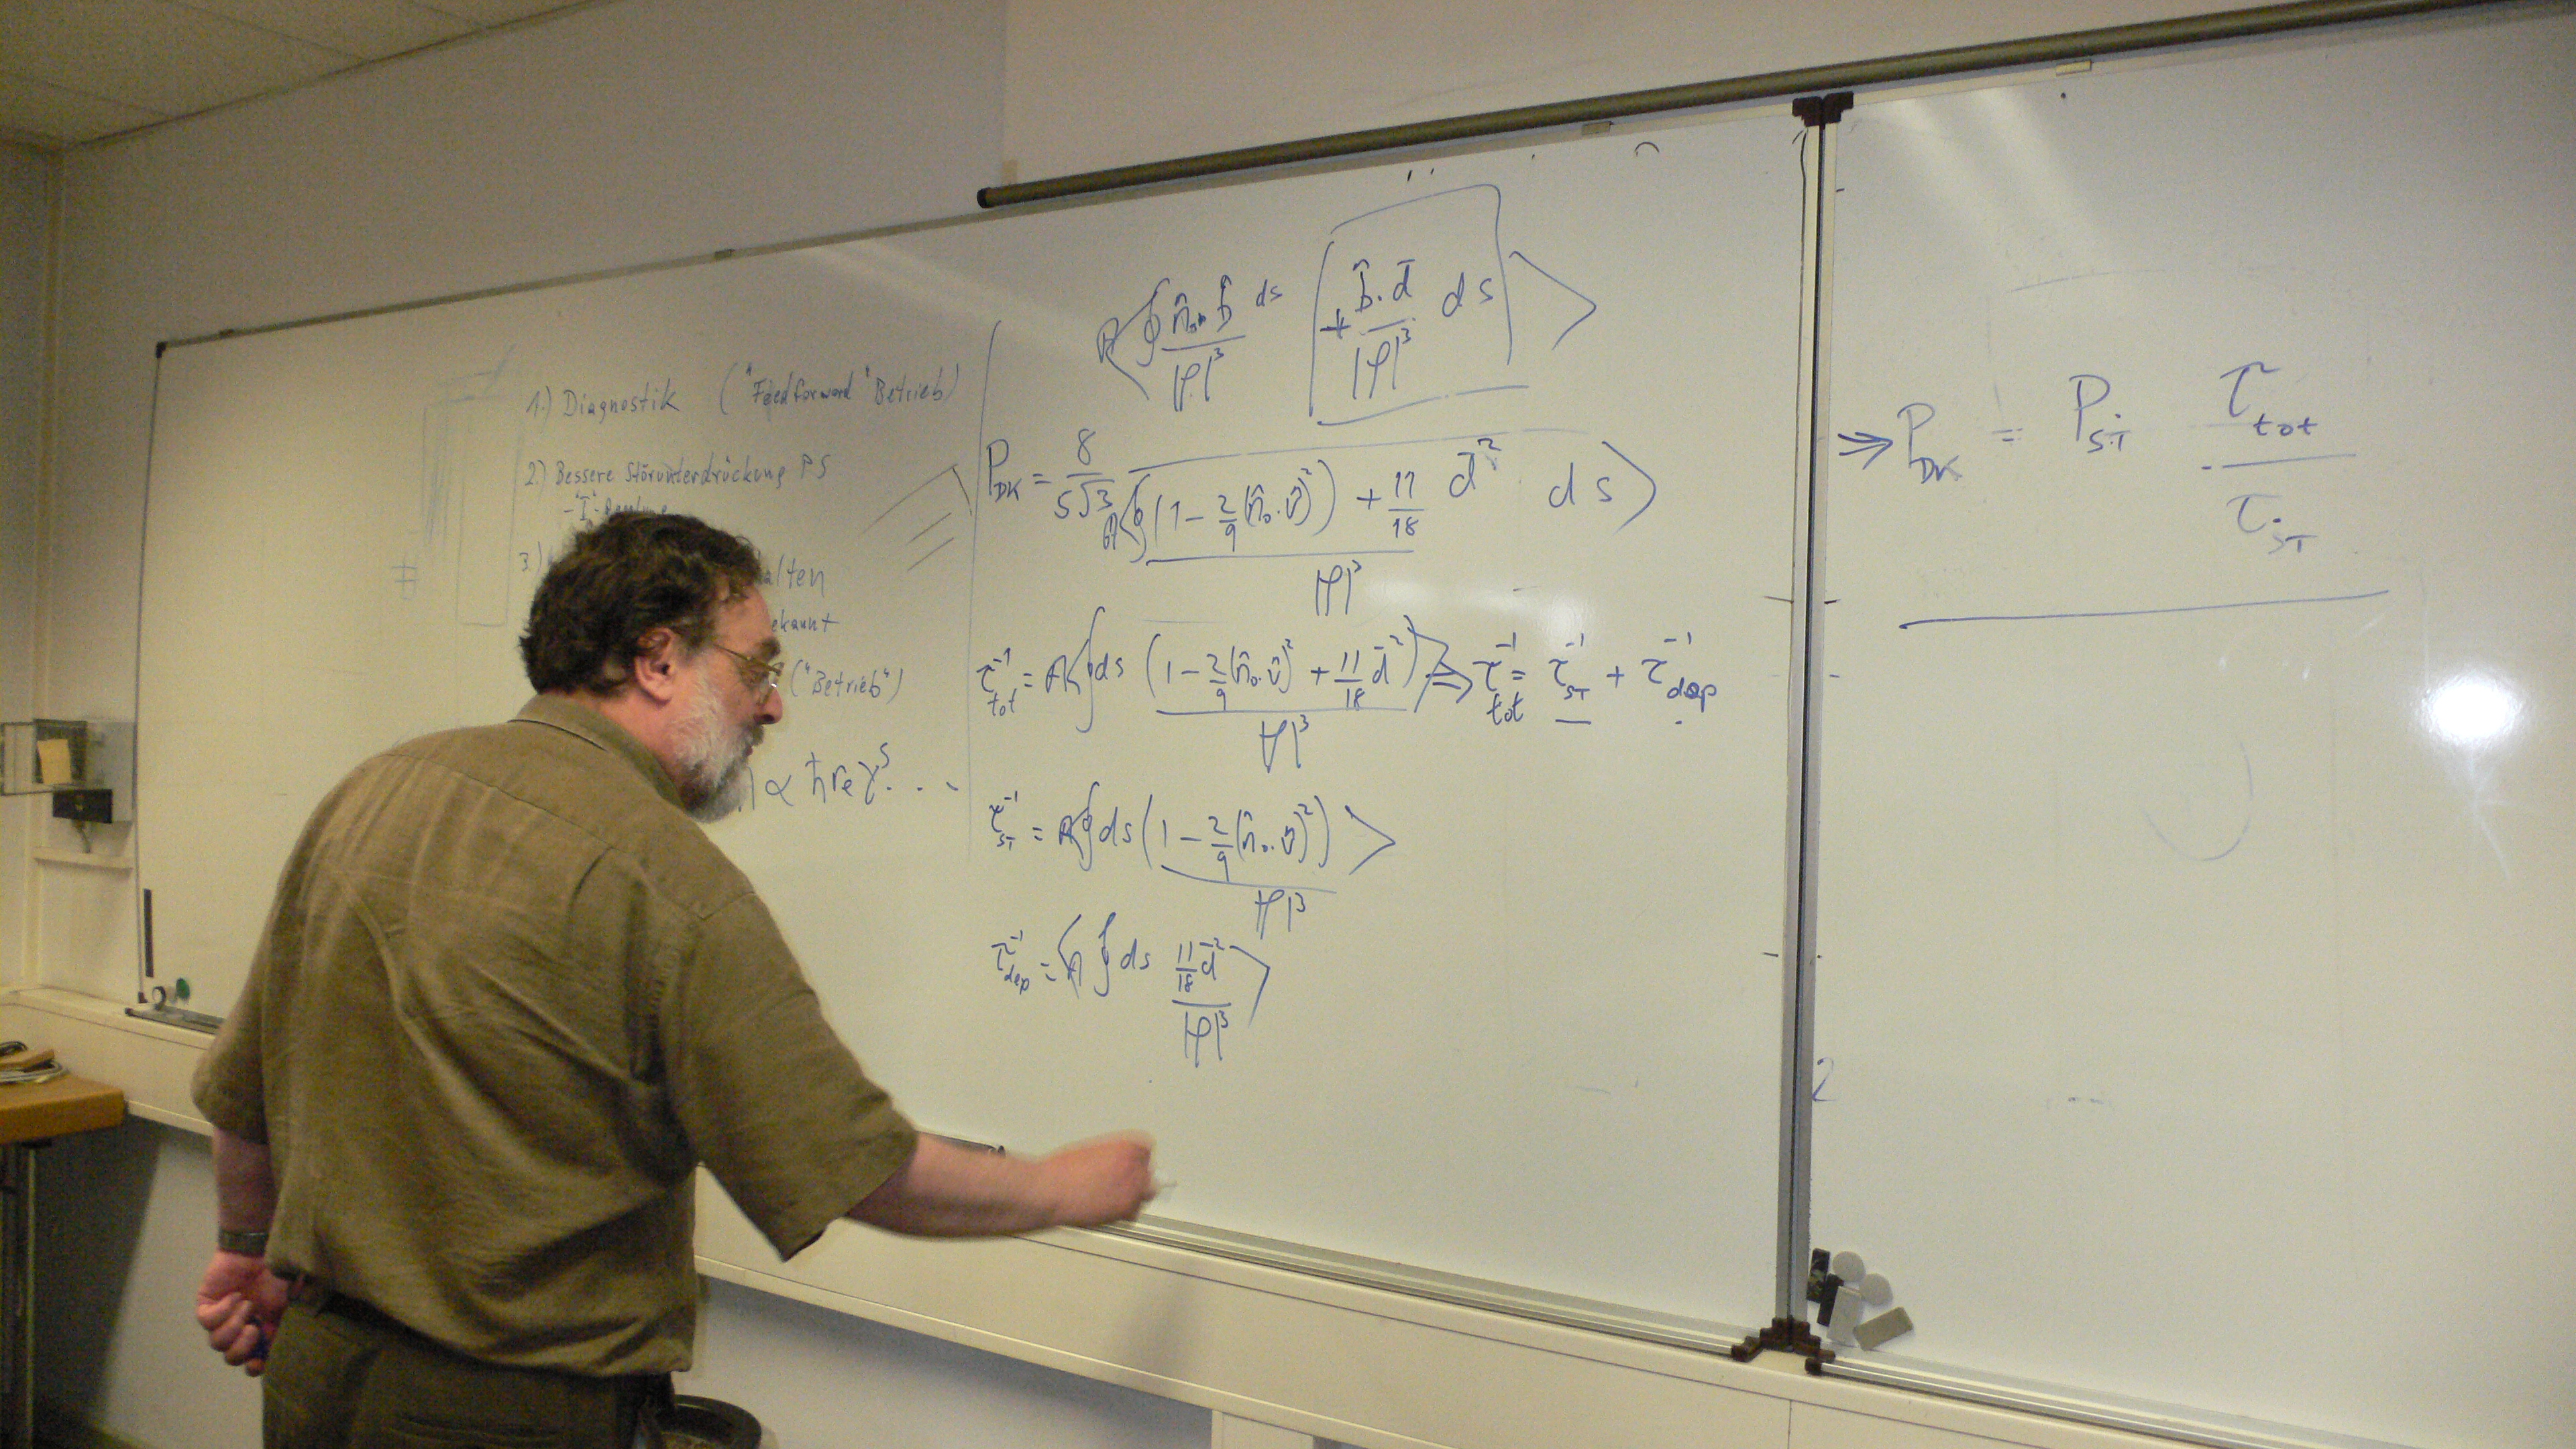 1.) Diagnostik ("Feedforward" Betrieb)
2.) Bessere Störunterdrückung PS
- "I"-
3.)
alten
ekannt
("Betrieb")
∝ ħ r_e γ^5 . . .
⟨∮ (n̂_0 · b̂)/|ρ|^3 ds [+ (b̂ · d̄)/|ρ|^3 ds]⟩
P_DK = 8/(5√3) ⟨∮ ((1 - 2/9 (n̂_0 · v̂)^2) + 11/18 d̄^2)/|ρ|^3 ds⟩
τ_tot^-1 = ⟨∮ ds (1 - 2/9 (n̂_0 · v̂)^2 + 11/18 d̄^2)/|ρ|^3⟩ ⇒ τ_tot^-1 = τ_ST^-1 + τ_dep^-1
τ_ST^-1 = ⟨∮ ds (1 - 2/9 (n̂_0 · v̂)^2)/|ρ|^3⟩
τ_dep^-1 = ⟨∮ ds (11/18 d̄^2)/|ρ|^3⟩
⇒ P_DK = P_ST τ_tot/τ_ST
2